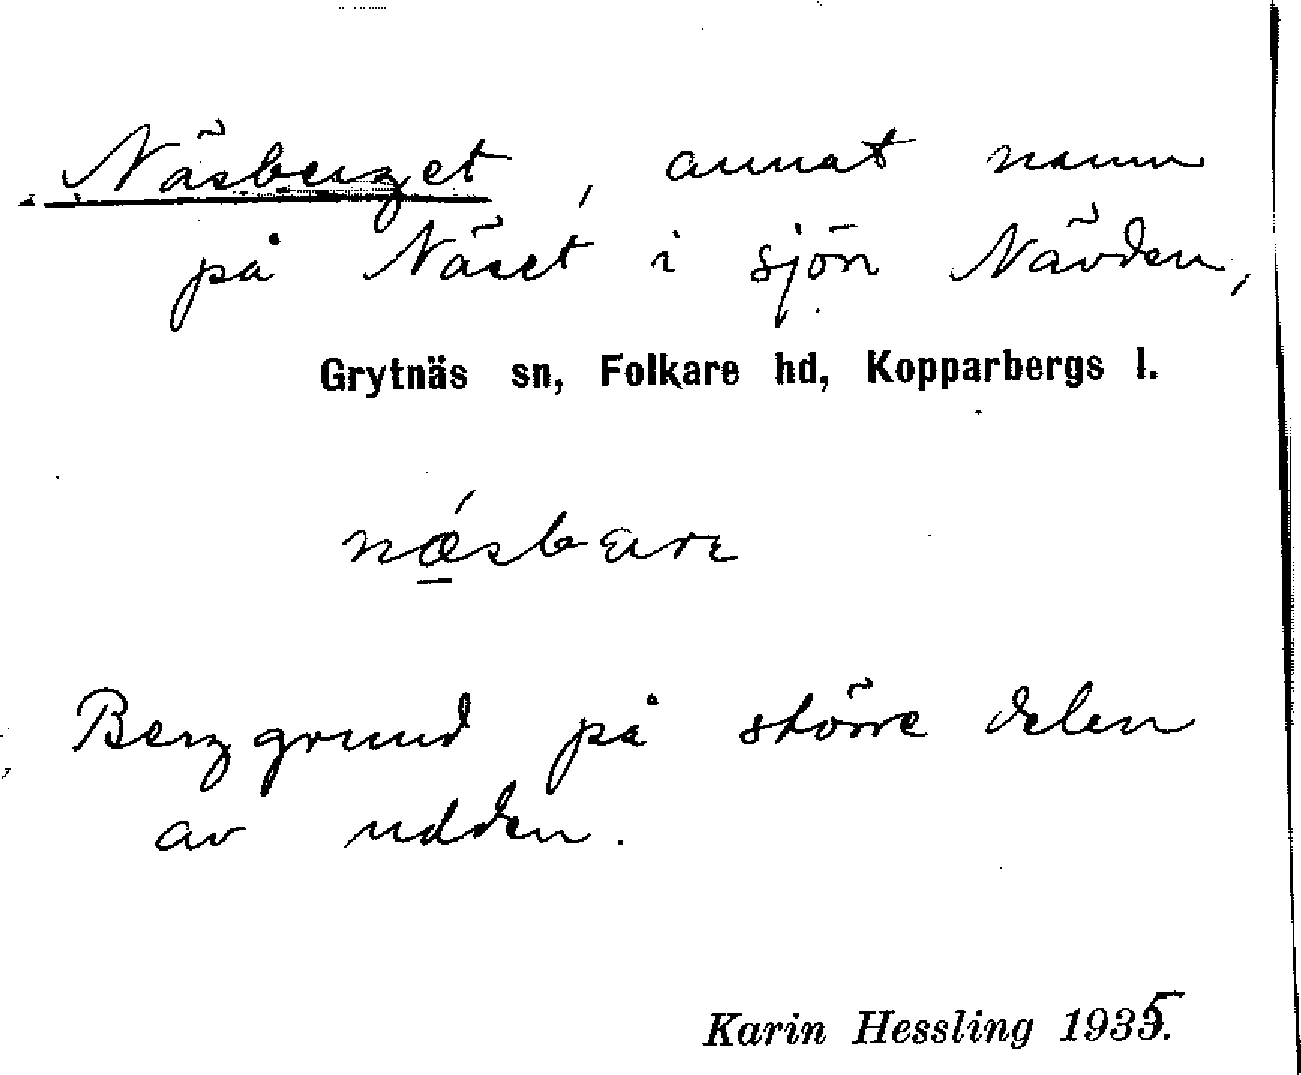 Näsberget, annat namn
på Näset i sjön Nävden,
Grytnäs sn, Folkare hd, Kopparbergs l.
Berggrund på större delen
av udden.
Karin Hessling 1935.